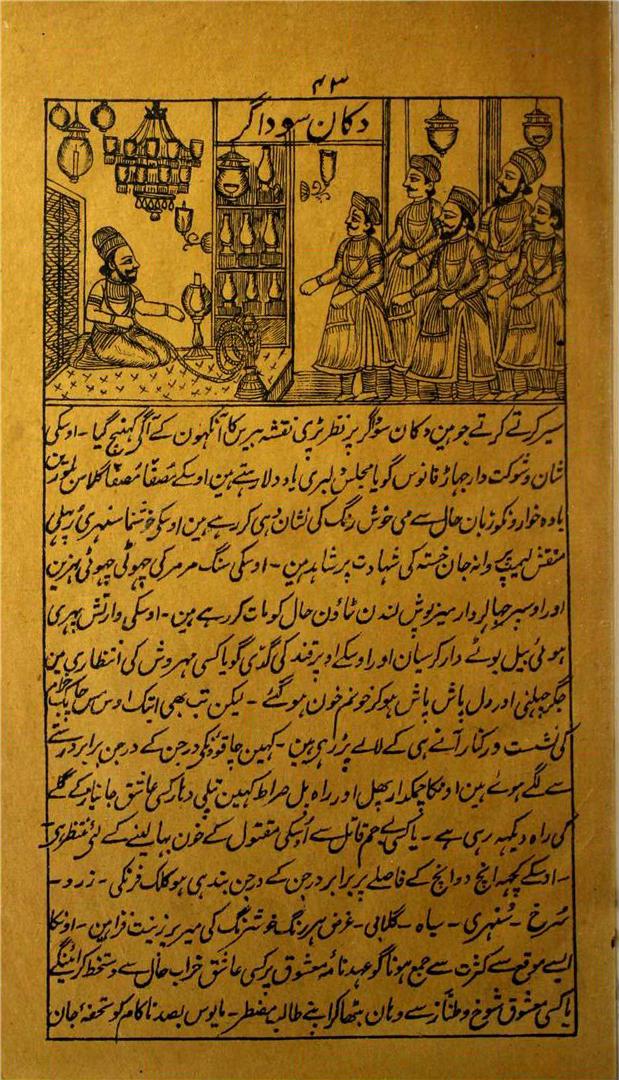 ۴۳
دکان سوداگر
سیر کرتے کرتے جوہین دکان سوداگر پر نظر پڑی نقشہ پیرس کا آنکھون کے آگے کھنچ گیا - اوسکی
شان و شوکت دار جھاڑ فانوس گویا مجلس دلبری یاد دلا رہے ہین اوسکے مصفا مصفا گلاس
بادہ خوارونکو زبان حال سے می خوش رنگ کی نشان دہی کر رہے ہین اوسکی خوشنما سنہری رپہلی
منقش لیمپ پروانہ جان خستہ کی شہادت پر شاہد ہین - اوسکی سنگ مرمر کی چھوٹی چھوٹی میزین
اور اوسپر جھالردار میزپوش لندن ٹاؤن حال کو مات کر رہے ہین - اوسکی وارنش پھری
ہوئی بیل بوٹے دار کرسیان اور اوسکے اوپر قند کی گدی گویا کسی مہروش کی انتظاری مین
جگر چھلنی اور دل پاش پاش ہوکر خونم خون ہو گئے - لیکن تب بھی ابتک اوس
کی نشست درکنار آنے ہی کے لالے پڑ رہے ہین - کہین چاقوؤنکی درجن کے درجن برابر
سے لگے ہوئے ہین اونکا چمکدار پھل اور راہ پل صراط کہین پتلی دہار کسی عاشق جانباز کے گلے
کی راہ دیکھ رہی ہے - یا کسی بے رحم قاتل سے اوسکی مقتول کے خون بہا لینے کے لئے منتظر ہے
- اوسکے کچھ انچ دو انچ کے فاصلے پر برابر درجن کے درجن بندہی ہو کلک فرنگی - زرد -
سرخ - سنہری - سیاہ - گلابی - غرض ہر رنگ خوشرنگ کی میز پر زینت فزا ہین - اونکا
ایسے موقع سے کثرت سے جمع ہونا گو عہدنامۂ معشوق پر کسی عاشق خراب حال سے دستخط کرائینگے
یا کسی معشوق شوخ و طناز سے وہان بٹھاکر اپنے طالب مضطر - مایوس بصد ناکام کو تحفۂ جان